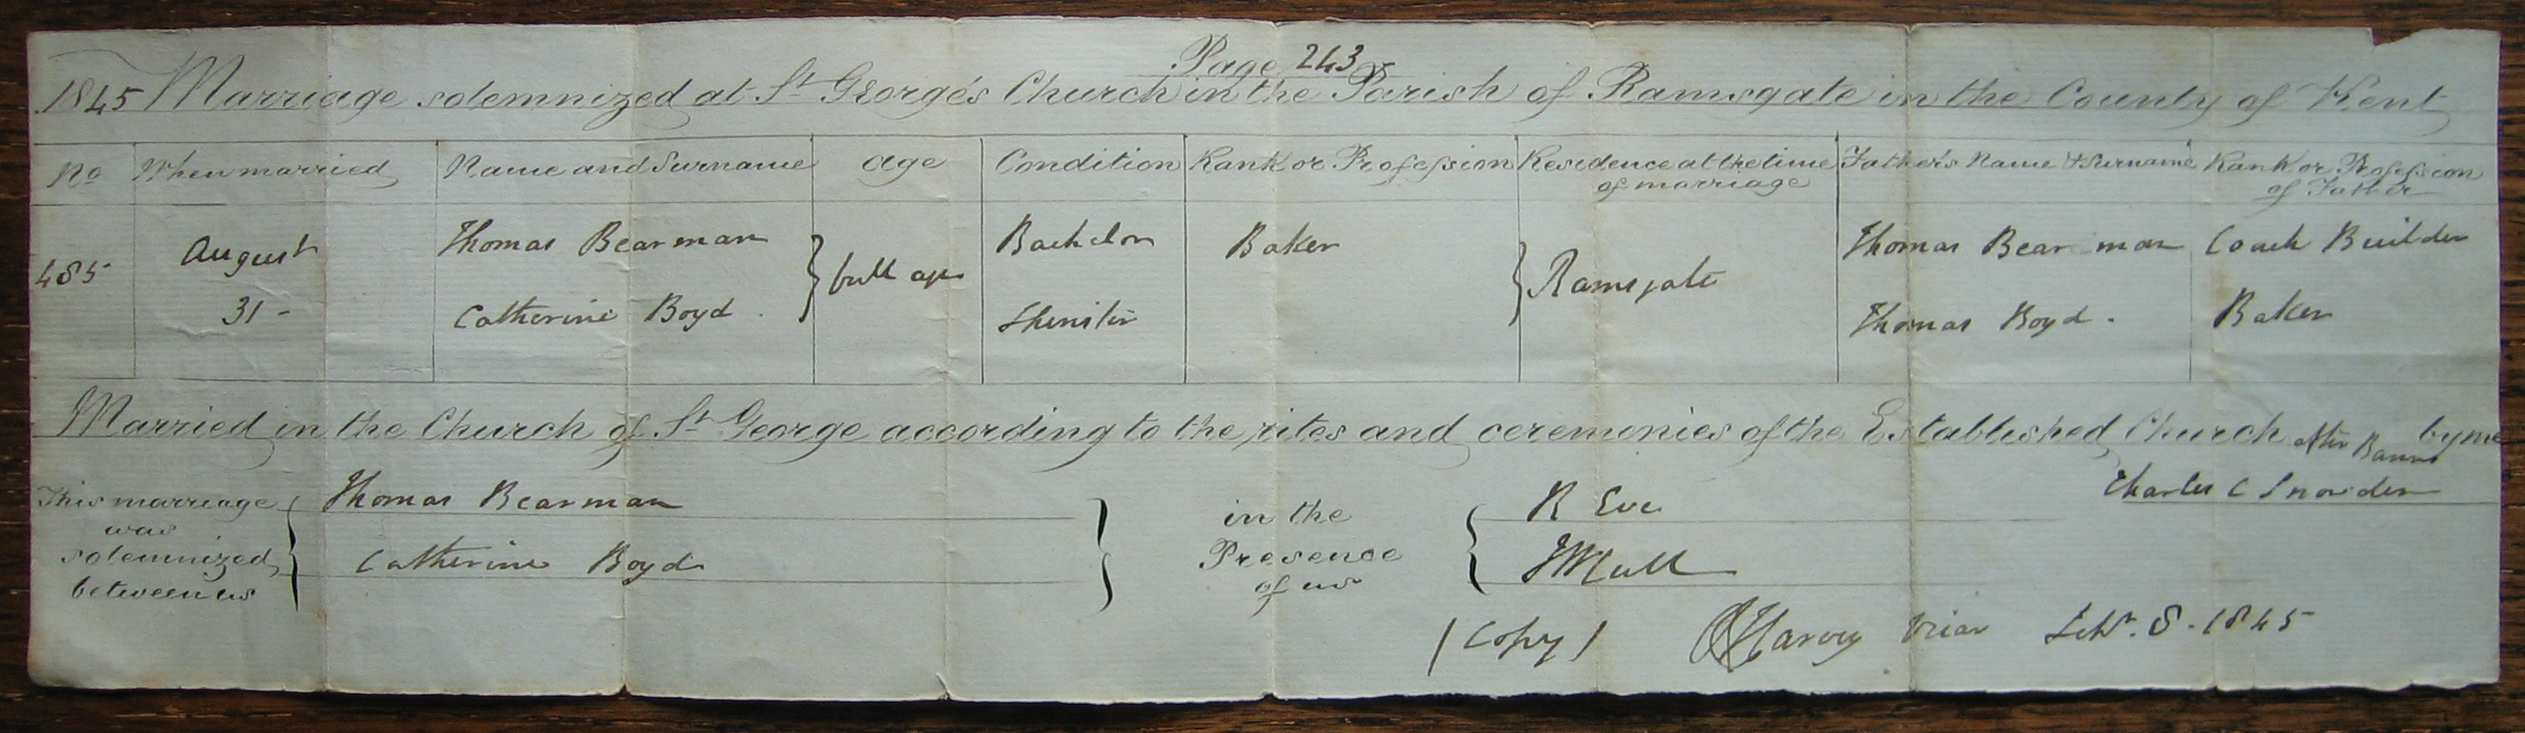 Page 243
1845 Marriage solemnized at St George's Church in the Parish of Ramsgate in the County of Kent
No When married Name and Surname age Condition Rank or Profession Residence at the time of marriage Father's Name & Surname Rank or Profession of Father
485 August 31 - Thomas Bearman full age Bachelor Baker Ramsgate Thomas Bearman Coach Builder
Catherine Boyd Spinster Thomas Boyd. Baker
Married in the Church of St George according to the rites and ceremonies of the Established Church after Banns by me
Charles C Snowden
This marriage was solemnized between us { Thomas Bearman
Catherine Boyd } in the Presence of us { R Eve
(Copy) Harvey Vicar 8. 1845